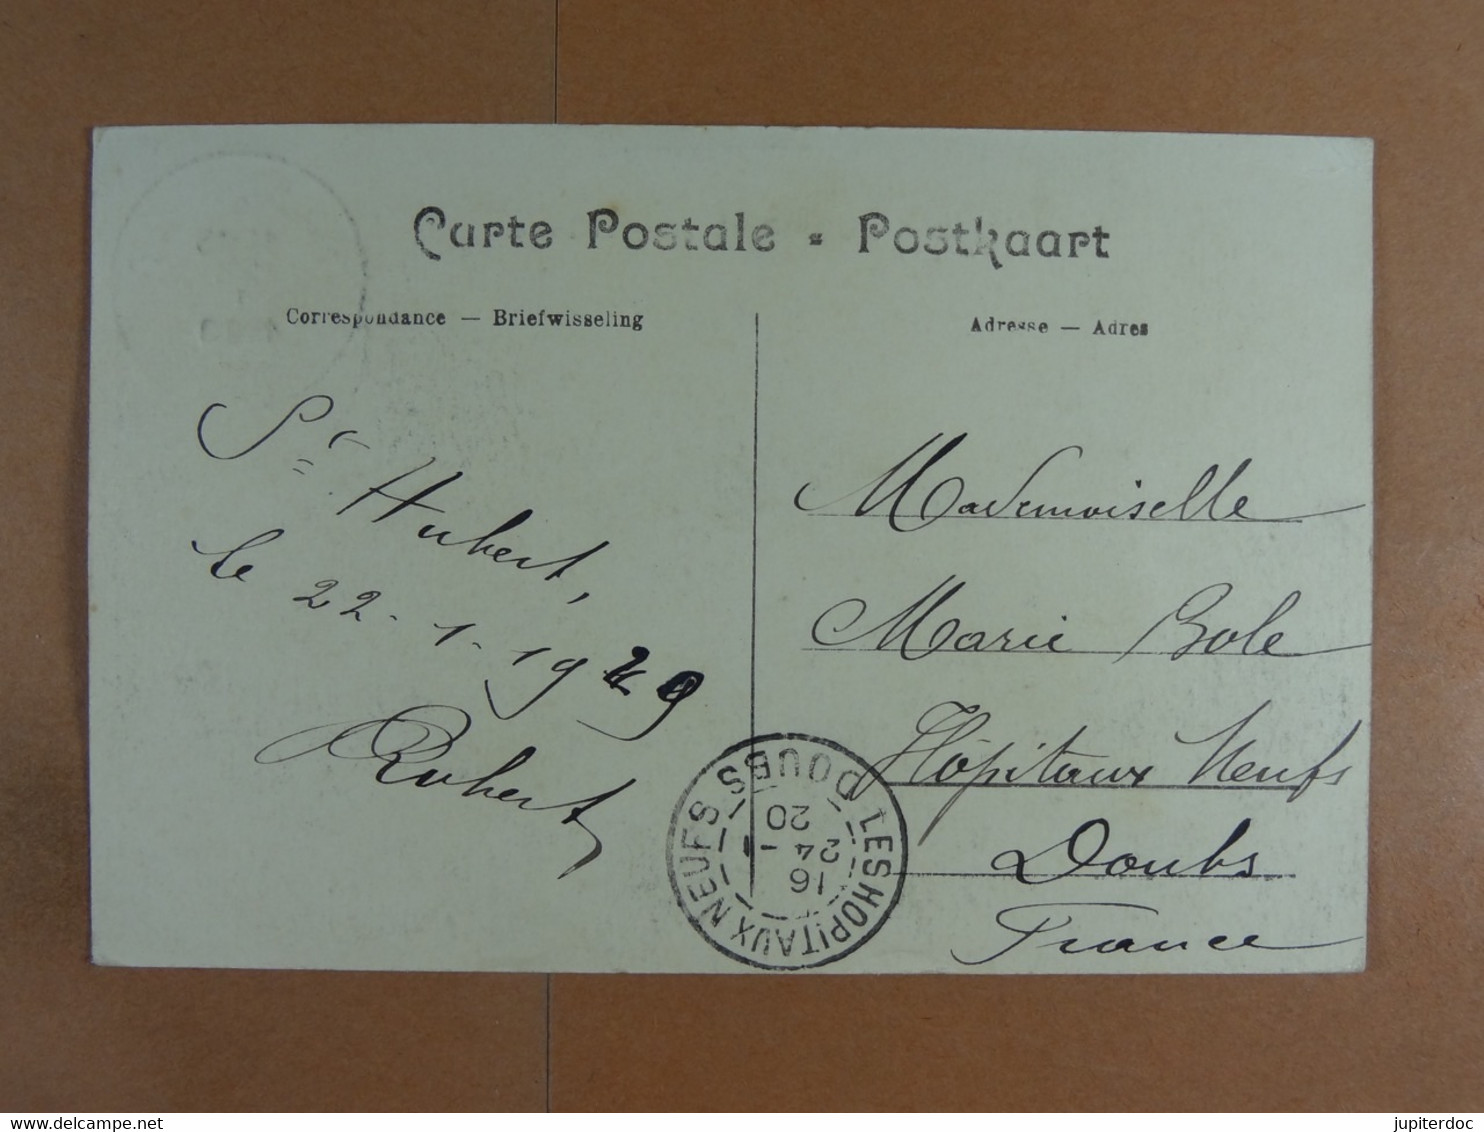 Carte Postale - Postkaart
Correspondance — Briefwisseling
Adresse — Adres
St Hubert,
le 22-1-19
Robert
Mademoiselle
Marie Bole
Hôpitaux Neufs
Doubs
France
LES HOPITAUX NEUFS
DOUBS
16
24
1
20
delcampe.net
jupiterdoc